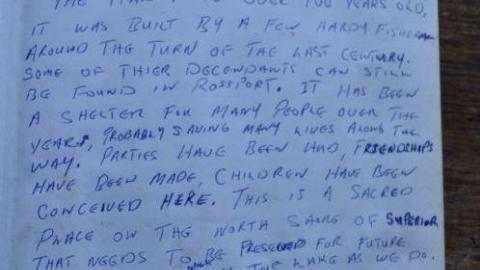 OVER 100 YEARS OLD,
IT WAS BUILT BY A FEW HARDY FISHERMAN
AROUND THE TURN OF THE LAST CENTURY.
SOME OF THIER DECENDANTS CAN STILL
BE FOUND IN ROSSPORT. IT HAS BEEN
A SHELTER FOR MANY PEOPLE OVER THE
YEARS, PROBABLY SAVING MANY LIVES ALONG THE
WAY. PARTIES HAVE BEEN HAD, FRIENDSHIPS
HAVE BEEN MADE, CHILDREN HAVE BEEN
CONCEIVED HERE. THIS IS A SACRED
PLACE ON THE NORTH SHORE OF SUPERIOR
THAT NEEDS TO BE PRESERVED FOR FUTURE
THE LAKE AS WE DO.